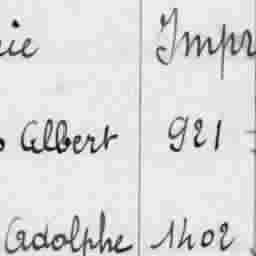 ie Impr
Albert 921
Adolphe 1402